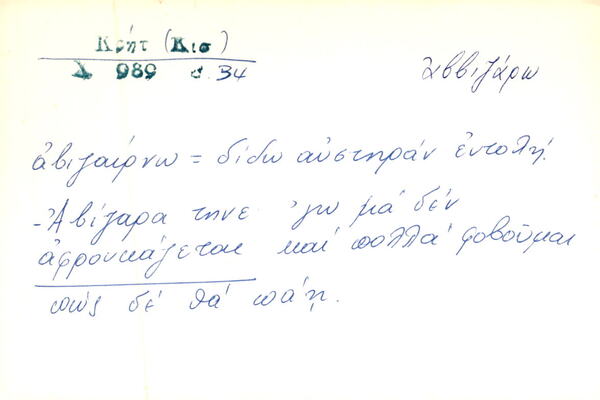 Κρήτ (Κισ)
Δ 989 σ. 34
ἀββιζάρω
ἀβιζαίρνω = δίδω αὐστηράν ἐντολή.
- Ἀβίζαρα τηνε ἐγω μά δέν
ἀφρουκάζεται καί πολλά φοβοῦμαι
πώς δέ θά πάῃ.